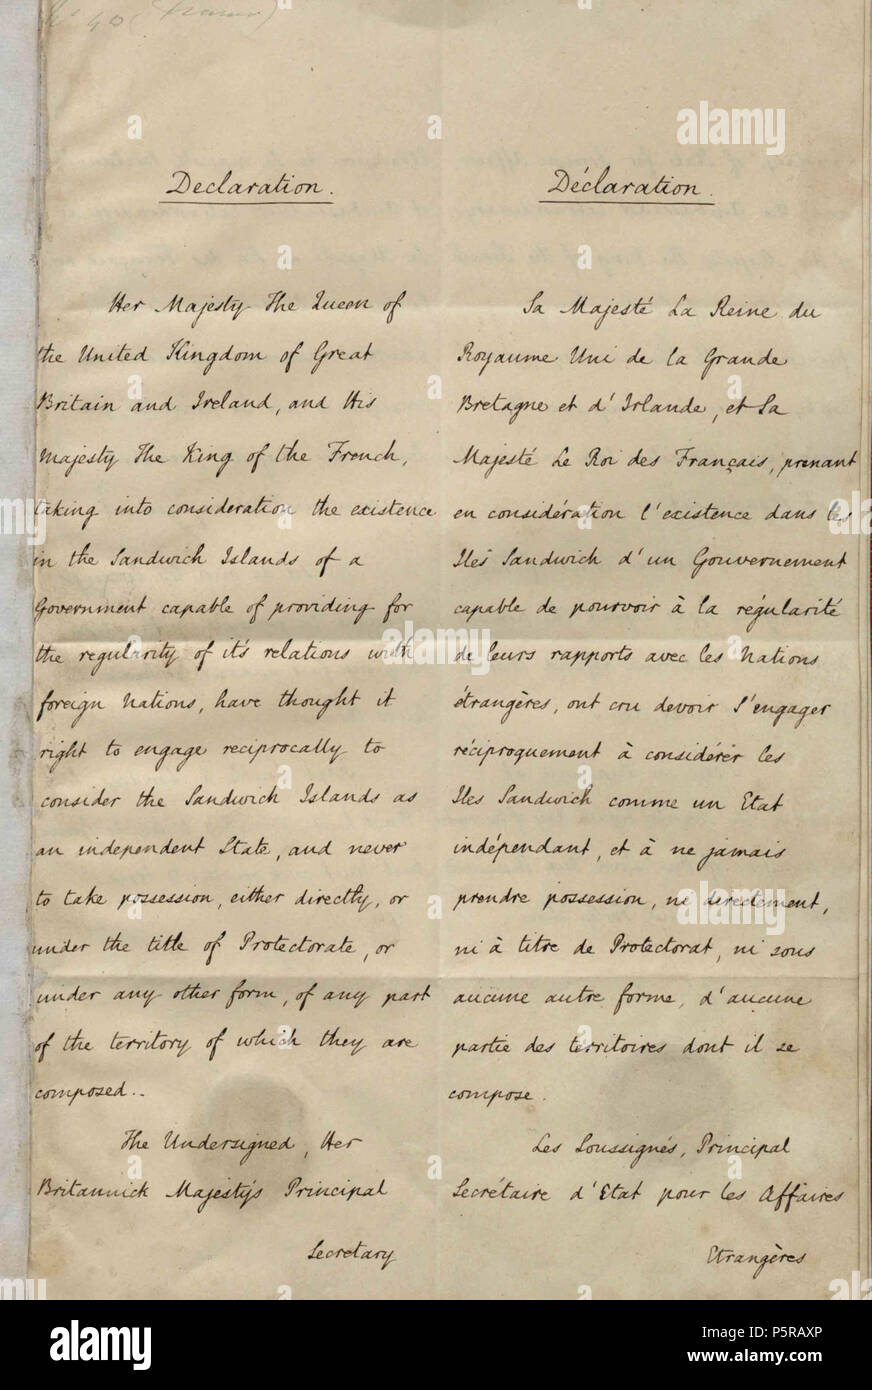 Declaration.
Her Majesty The Queen of
the United Kingdom of Great
Britain and Ireland, and His
Majesty The King of the French,
taking into consideration the existence
in the Sandwich Islands of a
Government capable of providing for
the regularity of it's relations with
foreign Nations, have thought it
right to engage reciprocally to
consider the Sandwich Islands as
an independent State, and never
to take possession, either directly, or
under the title of Protectorate, or
under any other form, of any part
of the territory of which they are
composed..
The Undersigned, Her
Britannick Majesty's Principal
Secretary
Déclaration.
Sa Majesté La Reine du
Royaume Uni de la Grande
Bretagne et d'Irlande, et Sa
Majesté Le Roi des Français, prenant
en considération l'existence dans les
Iles Sandwich d'un Gouvernement
capable de pourvoir à la régularité
de leurs rapports avec les Nations
étrangères, ont cru devoir s'engager
réciproquement à considérer les
Iles Sandwich comme un Etat
indépendant, et à ne jamais
prendre possession, ni directement,
ni à titre de Protectorat, ni sous
aucune autre forme, d'aucune
partie des territoires dont il se
compose.
Les Soussignés, Principal
Secrétaire d'Etat pour les Affaires
Etrangères
alamy
alamy
a
a
alamy
Image ID: P5RAXP
www.alamy.com